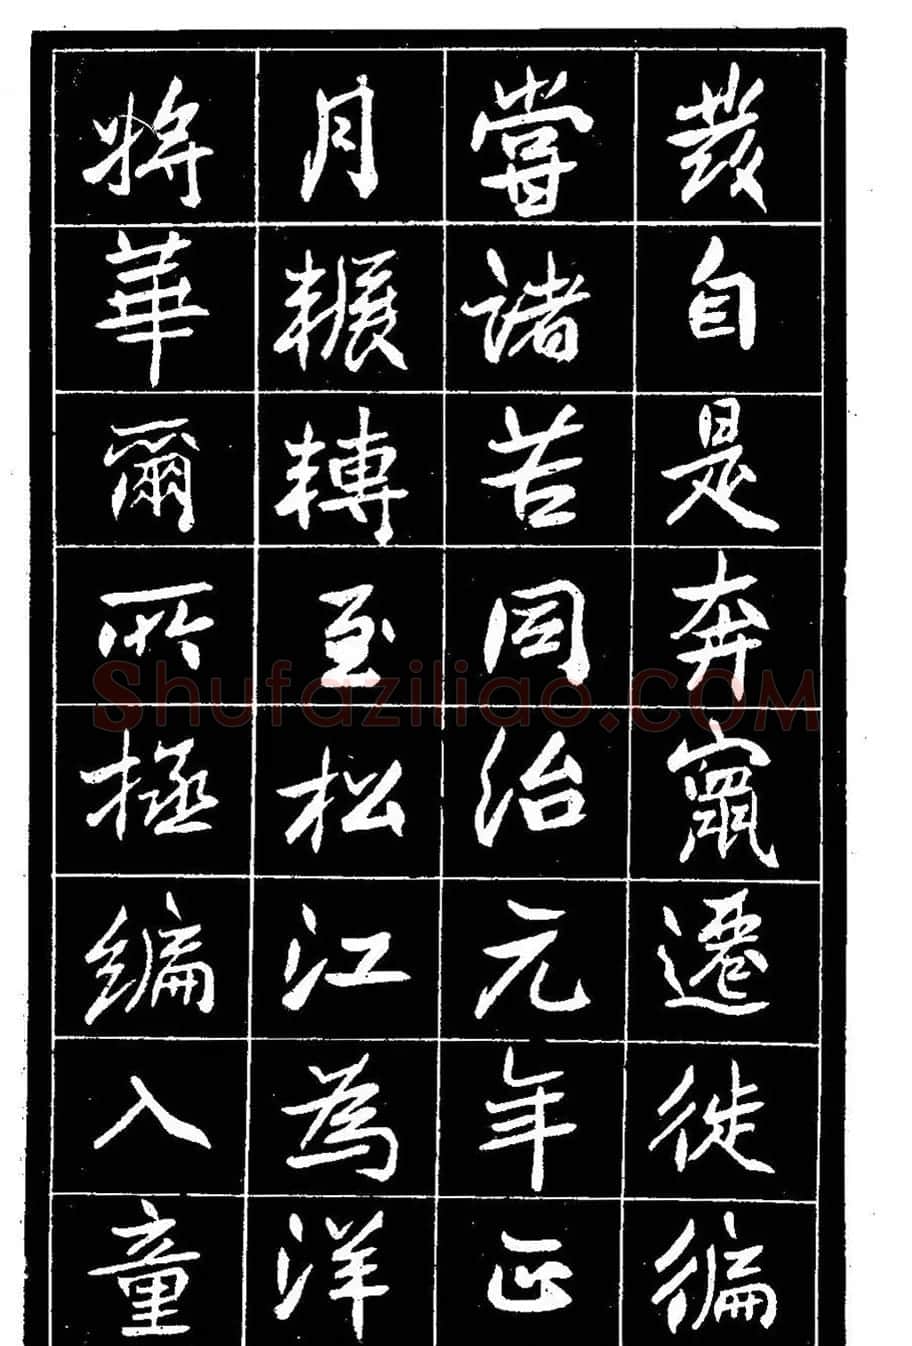 發自是奔竄遷徙徧
嘗諸苦同治元年正
月輾轉至松江為洋
將華爾所拯編入童
Shufaziliao.COM